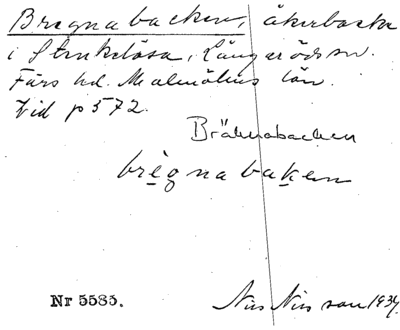 Bregnabacken, åkerbacke
i Stenkelösa, Långaröds sn.
Färs hd. Malmöhus län.
Vid p 572.
Brähnabacken
brègnabaken
Nr 5585.
Nils Nilsson 1934.